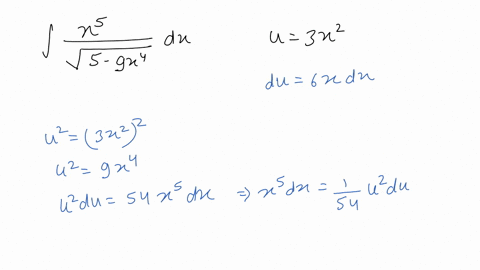 ∫ x⁵ / √(5 - 9x⁴) dx    u = 3x²
du = 6x dx
u² = (3x²)²
u² = 9x⁴
u² du = 54 x⁵ dx ⇒ x⁵ dx = 1/54 u² du